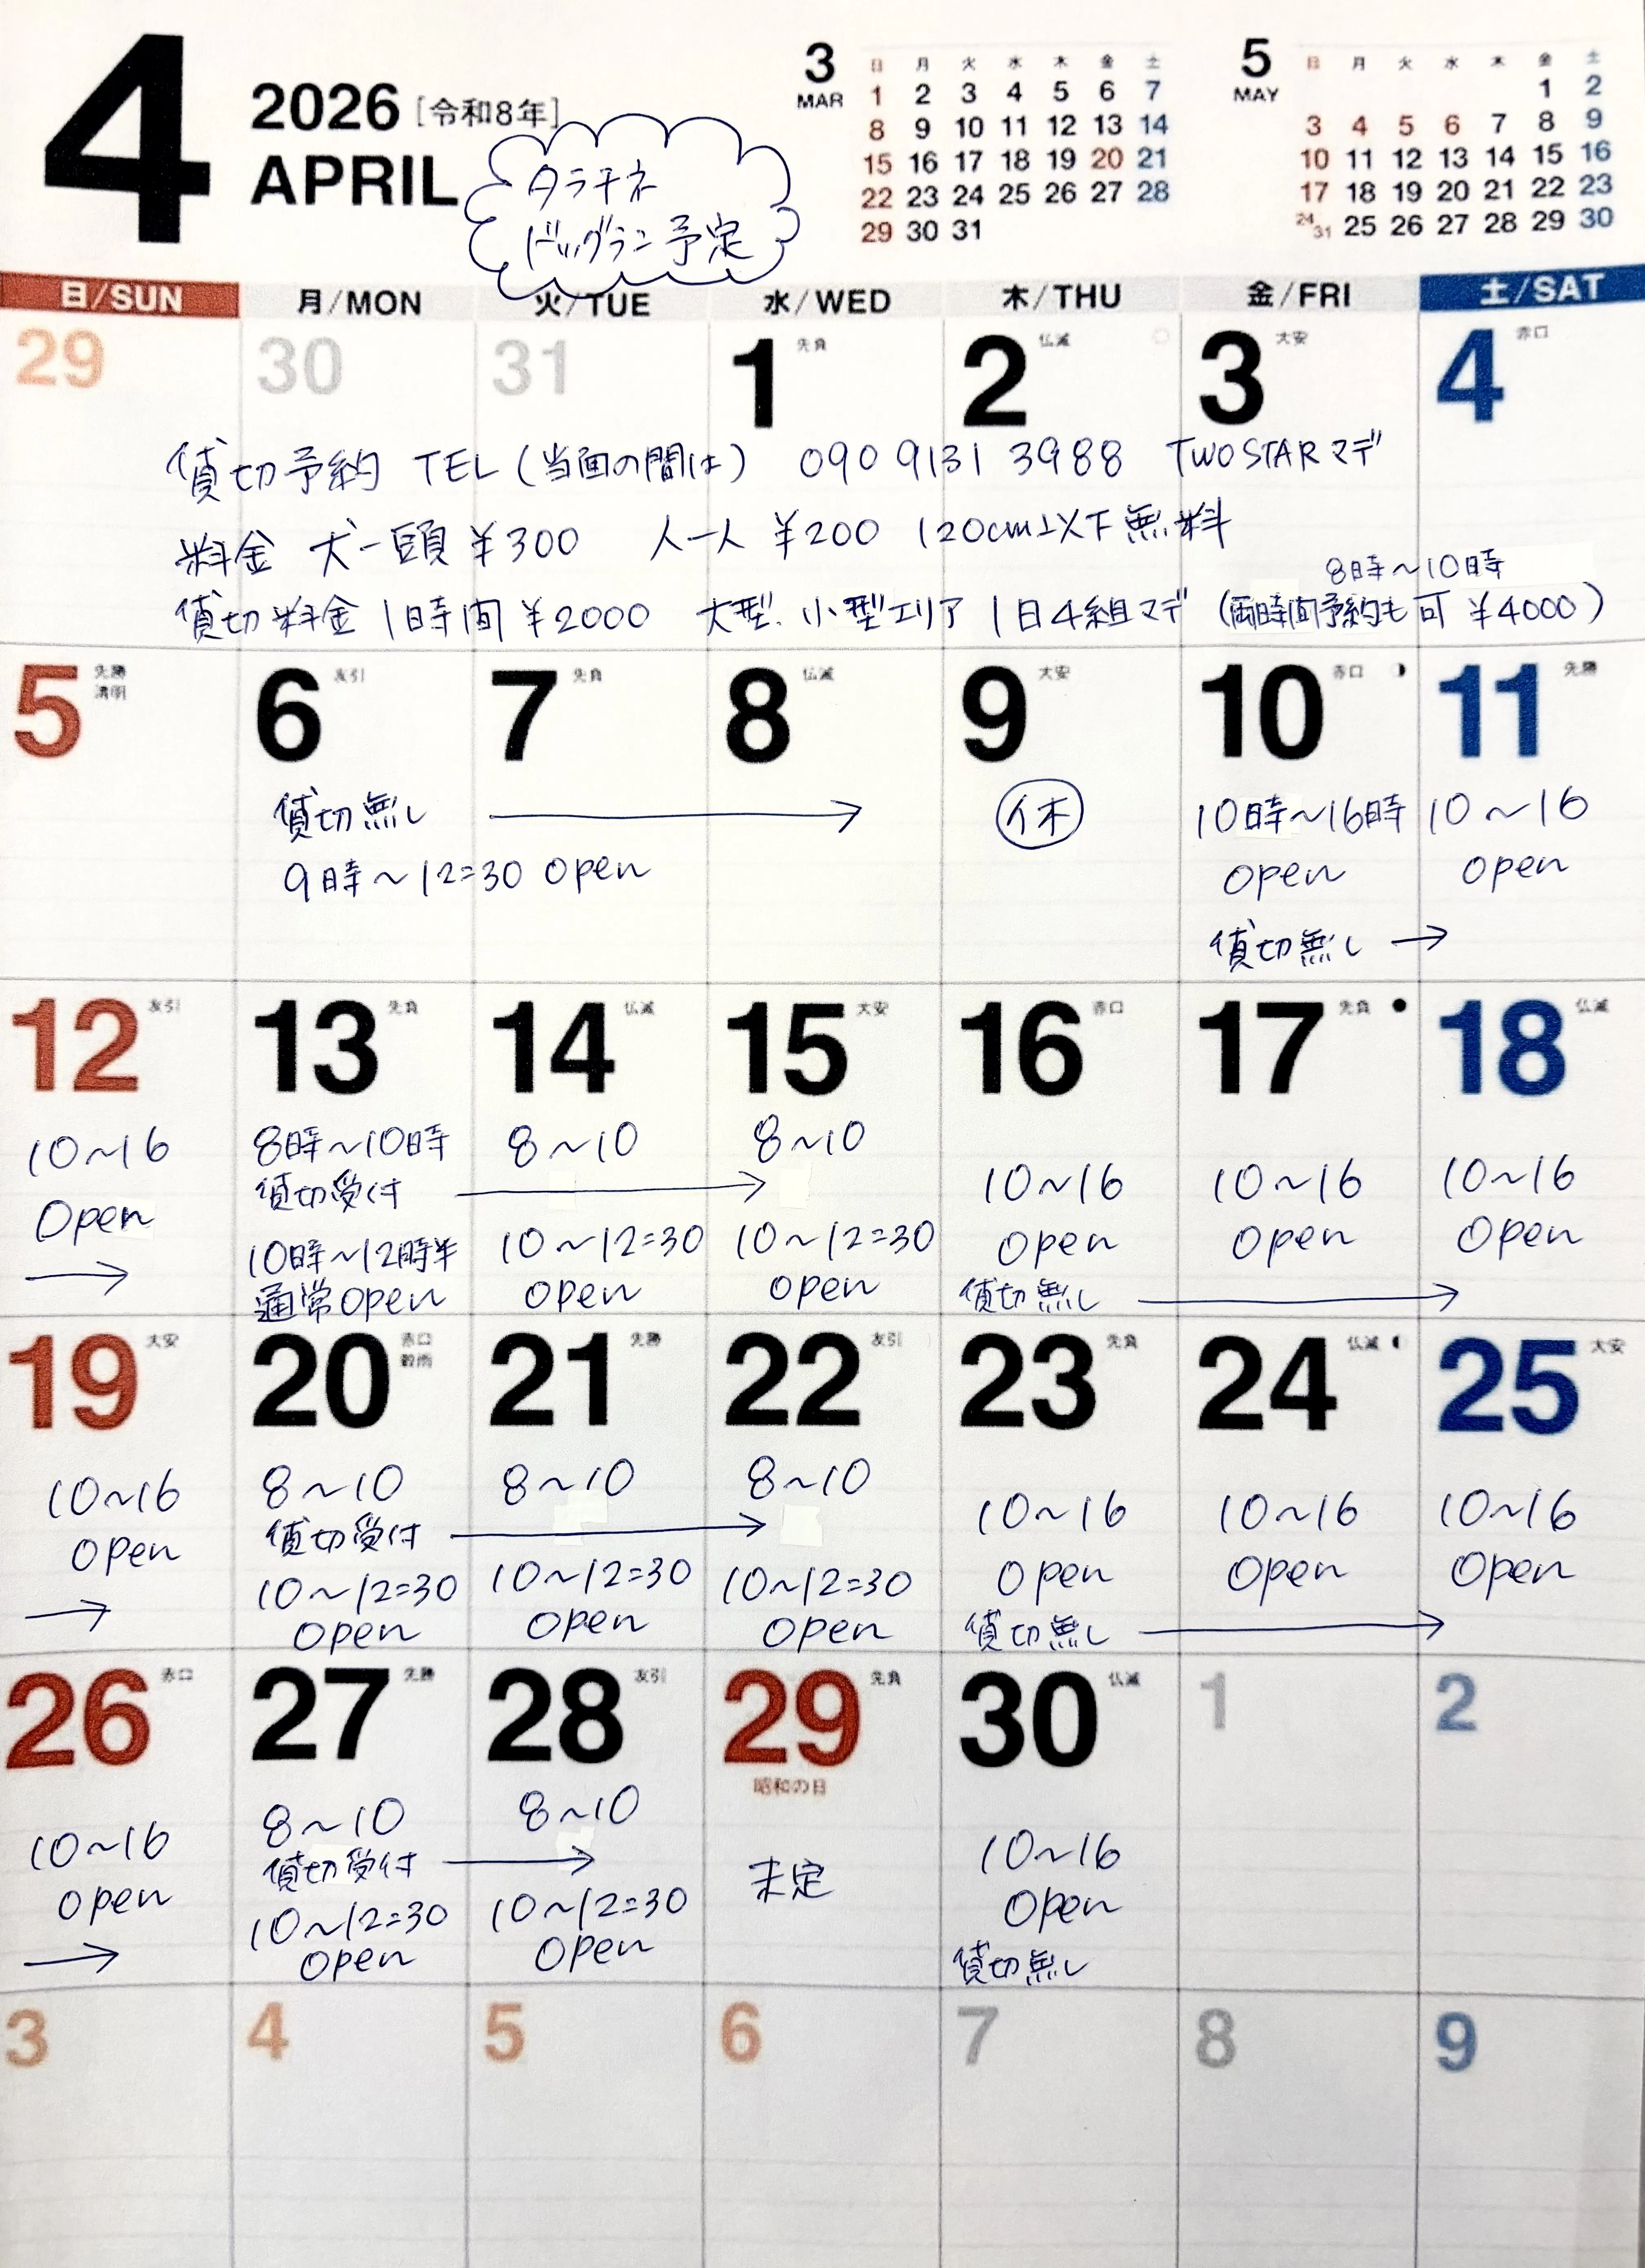 4
2026 [令和8年]
APRIL
タラチネ
ドッグラン予定
3
MAR
日 月 火 水 木 金 土
1 2 3 4 5 6 7
8 9 10 11 12 13 14
15 16 17 18 19 20 21
22 23 24 25 26 27 28
29 30 31
5
MAY
日 月 火 水 木 金 土
1 2
3 4 5 6 7 8 9
10 11 12 13 14 15 16
17 18 19 20 21 22 23
24/31 25 26 27 28 29 30
日/SUN 月/MON 火/TUE 水/WED 木/THU 金/FRI 土/SAT
29 30 31 1 先負 2 仏滅 3 大安 4 赤口
貸切予約 TEL (当面の間は) 090 9131 3988 TWOSTARマデ
料金 犬一頭 ¥300 人一人 ¥200 120cm以下無料
8時〜10時
貸切料金 1時間 ¥2000 大型、小型エリア 1日4組マデ (両時間予約も可 ¥4000)
5 先勝 6 友引 7 先負 8 仏滅 9 大安 10 赤口 11 先勝
清明
貸切無し → 休 10時〜16時 10〜16
9時〜12=30 open open open
貸切無し →
12 友引 13 先負 14 仏滅 15 大安 16 赤口 17 先負 18 仏滅
10〜16 8時〜10時 8〜10 8〜10 10〜16 10〜16 10〜16
open 貸切受付 → open open open
→ 10時〜12時半 10〜12=30 10〜12=30 貸切無し →
通常open open open
19 大安 20 赤口 21 先勝 22 友引 23 先負 24 仏滅 25 大安
穀雨
10〜16 8〜10 8〜10 8〜10 10〜16 10〜16 10〜16
open 貸切受付 → open open open
→ 10〜12=30 10〜12=30 10〜12=30 貸切無し →
open open open
26 赤口 27 先勝 28 友引 29 先負 30 仏滅 1 2
昭和の日
10〜16 8〜10 8〜10 未定 10〜16
open 貸切受付 → open
→ 10〜12=30 10〜12=30 貸切無し
open open
3 4 5 6 7 8 9